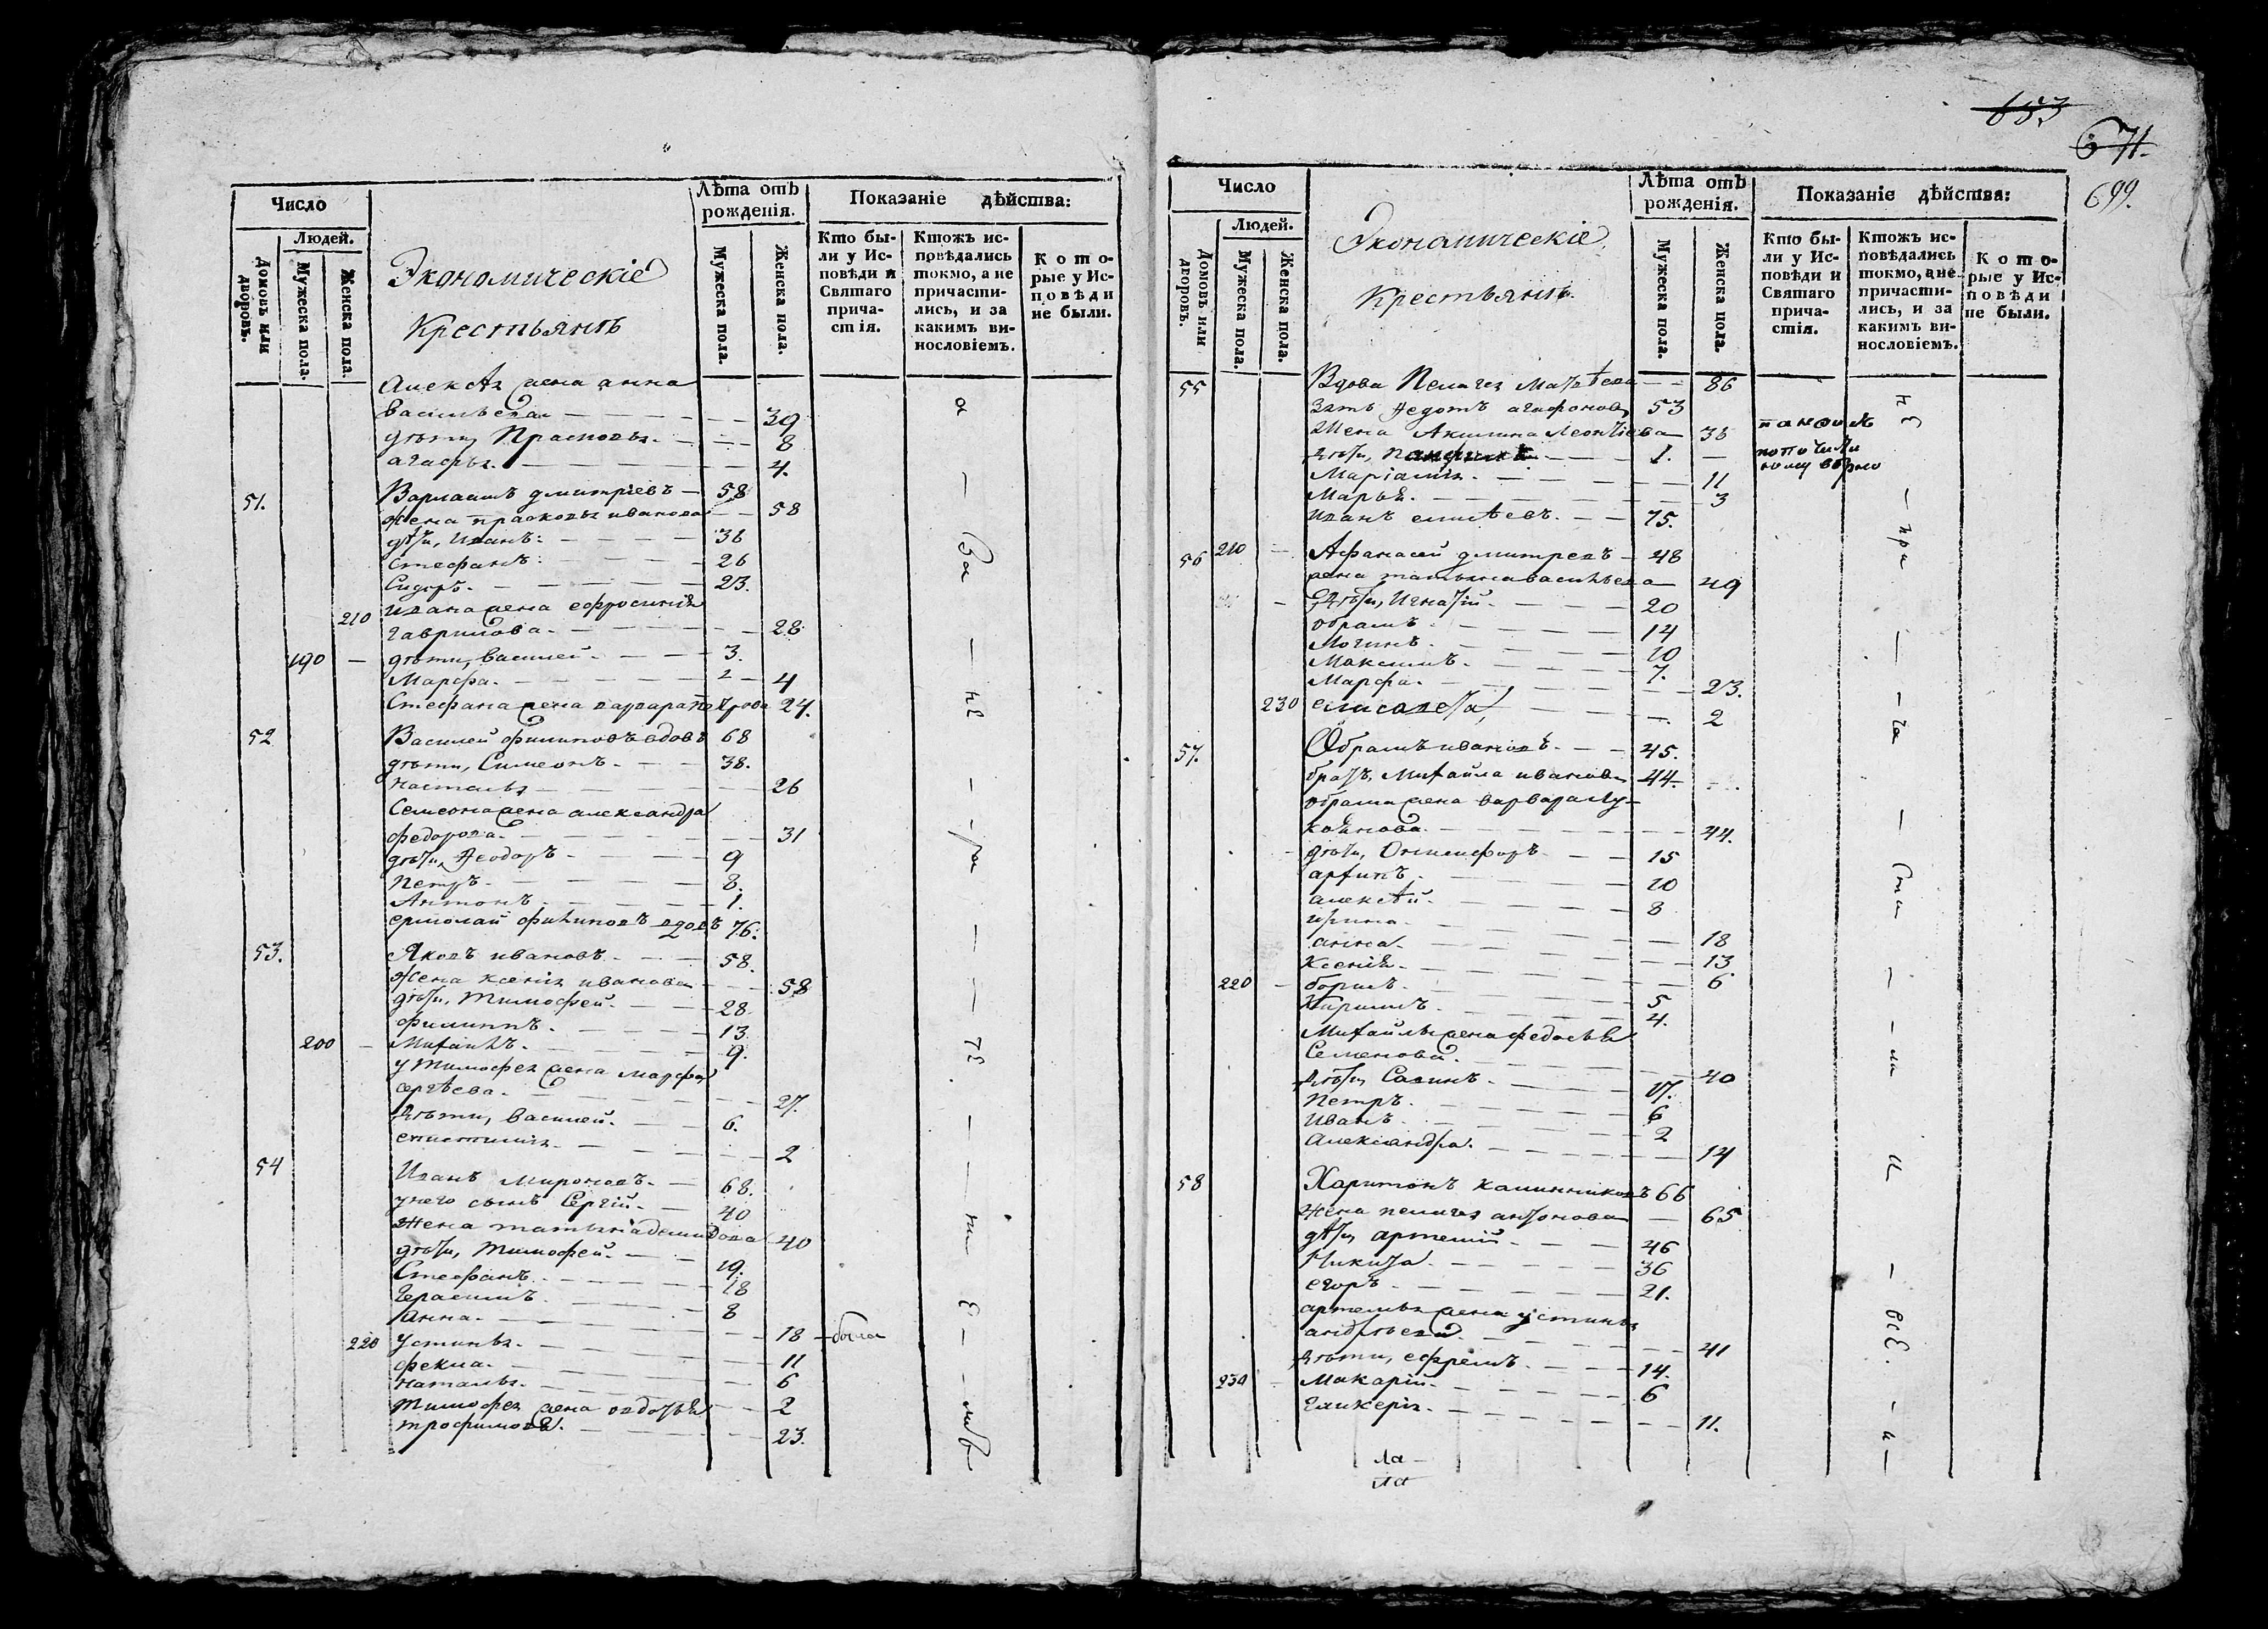 653
671.
699.
Число
Людей.
Домовъ или дворовъ.
Мужеска пола.
Женска пола.
Экономическіе
Крестьянъ
Лѣта отъ рожденія.
Мужеска пола.
Женска пола.
Показаніе дѣйства:
Кто бы-
ли у Ис-
повѣди и
Святаго
прича-
стія.
Ктожъ ис-
повѣдались
токмо, а не
причасти-
лись, и за
какимъ ви-
нословіемъ.
Кото-
рые у Ис-
повѣди
не были.
алексѣя жена анна
васильева 39
дѣти, Прасковья 8
агафья 4.
51. Варлаамъ дмитріевъ 58
жена прасковья иванова 58
дѣти, Иванъ: 36
Стефанъ: 26
Сидоръ. 23.
210 ивана жена ефросинія
гаврилова. 28
190 дѣти, василей. 3.
Марфа. 4
Стефана жена варвара петрова 24.
52 Василей филиповъ вдовъ 68
дѣти, Симеонъ. 38.
насталья 26
Семеона жена александра
федорова. 31
дѣти, Ѳеодоръ 9
Петръ 8.
Антонъ 1.
ермолай филиповъ вдовъ 76.
53. Яковъ ивановъ. 58.
жена ксенія иванова 58
дѣти, Тимофей. 28
филиппъ. 13
200 Михаилъ. 9.
у Тимофея жена марфа
сергѣева. 27.
дѣти, василей. 6.
епистимія 2
54 Иванъ Мироновъ. 68.
у него сынъ Сергій. 40
жена татьяна демидова 40
дѣти, Тимофей. 19.
Стефанъ. 18
Герасимъ 8
анна. 18 была
220 устинья. 11
фекла. 6
наталья. 2
Тимофея жена овдотья
трофимова. 23.
Число
Людей.
Домовъ или дворовъ.
Мужеска пола.
Женска пола.
Экономическіе
Крестьянъ.
Лѣта отъ рожденія.
Мужеска пола.
Женска пола.
Показаніе дѣйства:
Кто бы-
ли у Ис-
повѣди и
Святаго
прича-
стія.
Ктожъ ис-
повѣдались
токмо, а не
причасти-
лись, и за
какимъ ви-
нословіемъ.
Кото-
рые у Ис-
повѣди
не были.
55 Вдова Пелагея Матвѣева 86
зять Ѳедотъ агафоновъ 53
Жена Акилина Леонтіева 36
дѣти, Панфилъ 1.
Маріамія. 11
Марья. 3
Иванъ елисѣевъ. 75.
56 210 Афанасей дмитревъ 48
жена татьяна васильева 49
дѣти, Игнатій. 20
обрамъ 14
Логинъ. 10
Максимъ. 7.
Марфа. 23.
230 елисавета, 2
57. Обрамъ ивановъ. 45.
братъ, Михайла ивановъ 44.
обрама жена варвара лу-
коянова. 44.
дѣти, Онисифоръ 15
архипъ. 10
алексѣй. 8
ирина. 18
анна. 13
Ксенія. 6
220 борисъ. 5
Кирилъ. 4.
Михайлы жена федосья
Семенова. 40
дѣти, Савинъ. 17.
Петръ. 6
Иванъ. 2
Александра. 14
58 Харитонъ калинниковъ 66
жена пелагея антонова 65
дѣти, артемій 46
Никита. 36
егоръ 21.
артемья жена устинья
андрѣева 41
дѣти, ефремъ. 14.
230 Макарій. 6
гликерія. 11.
ла
ла